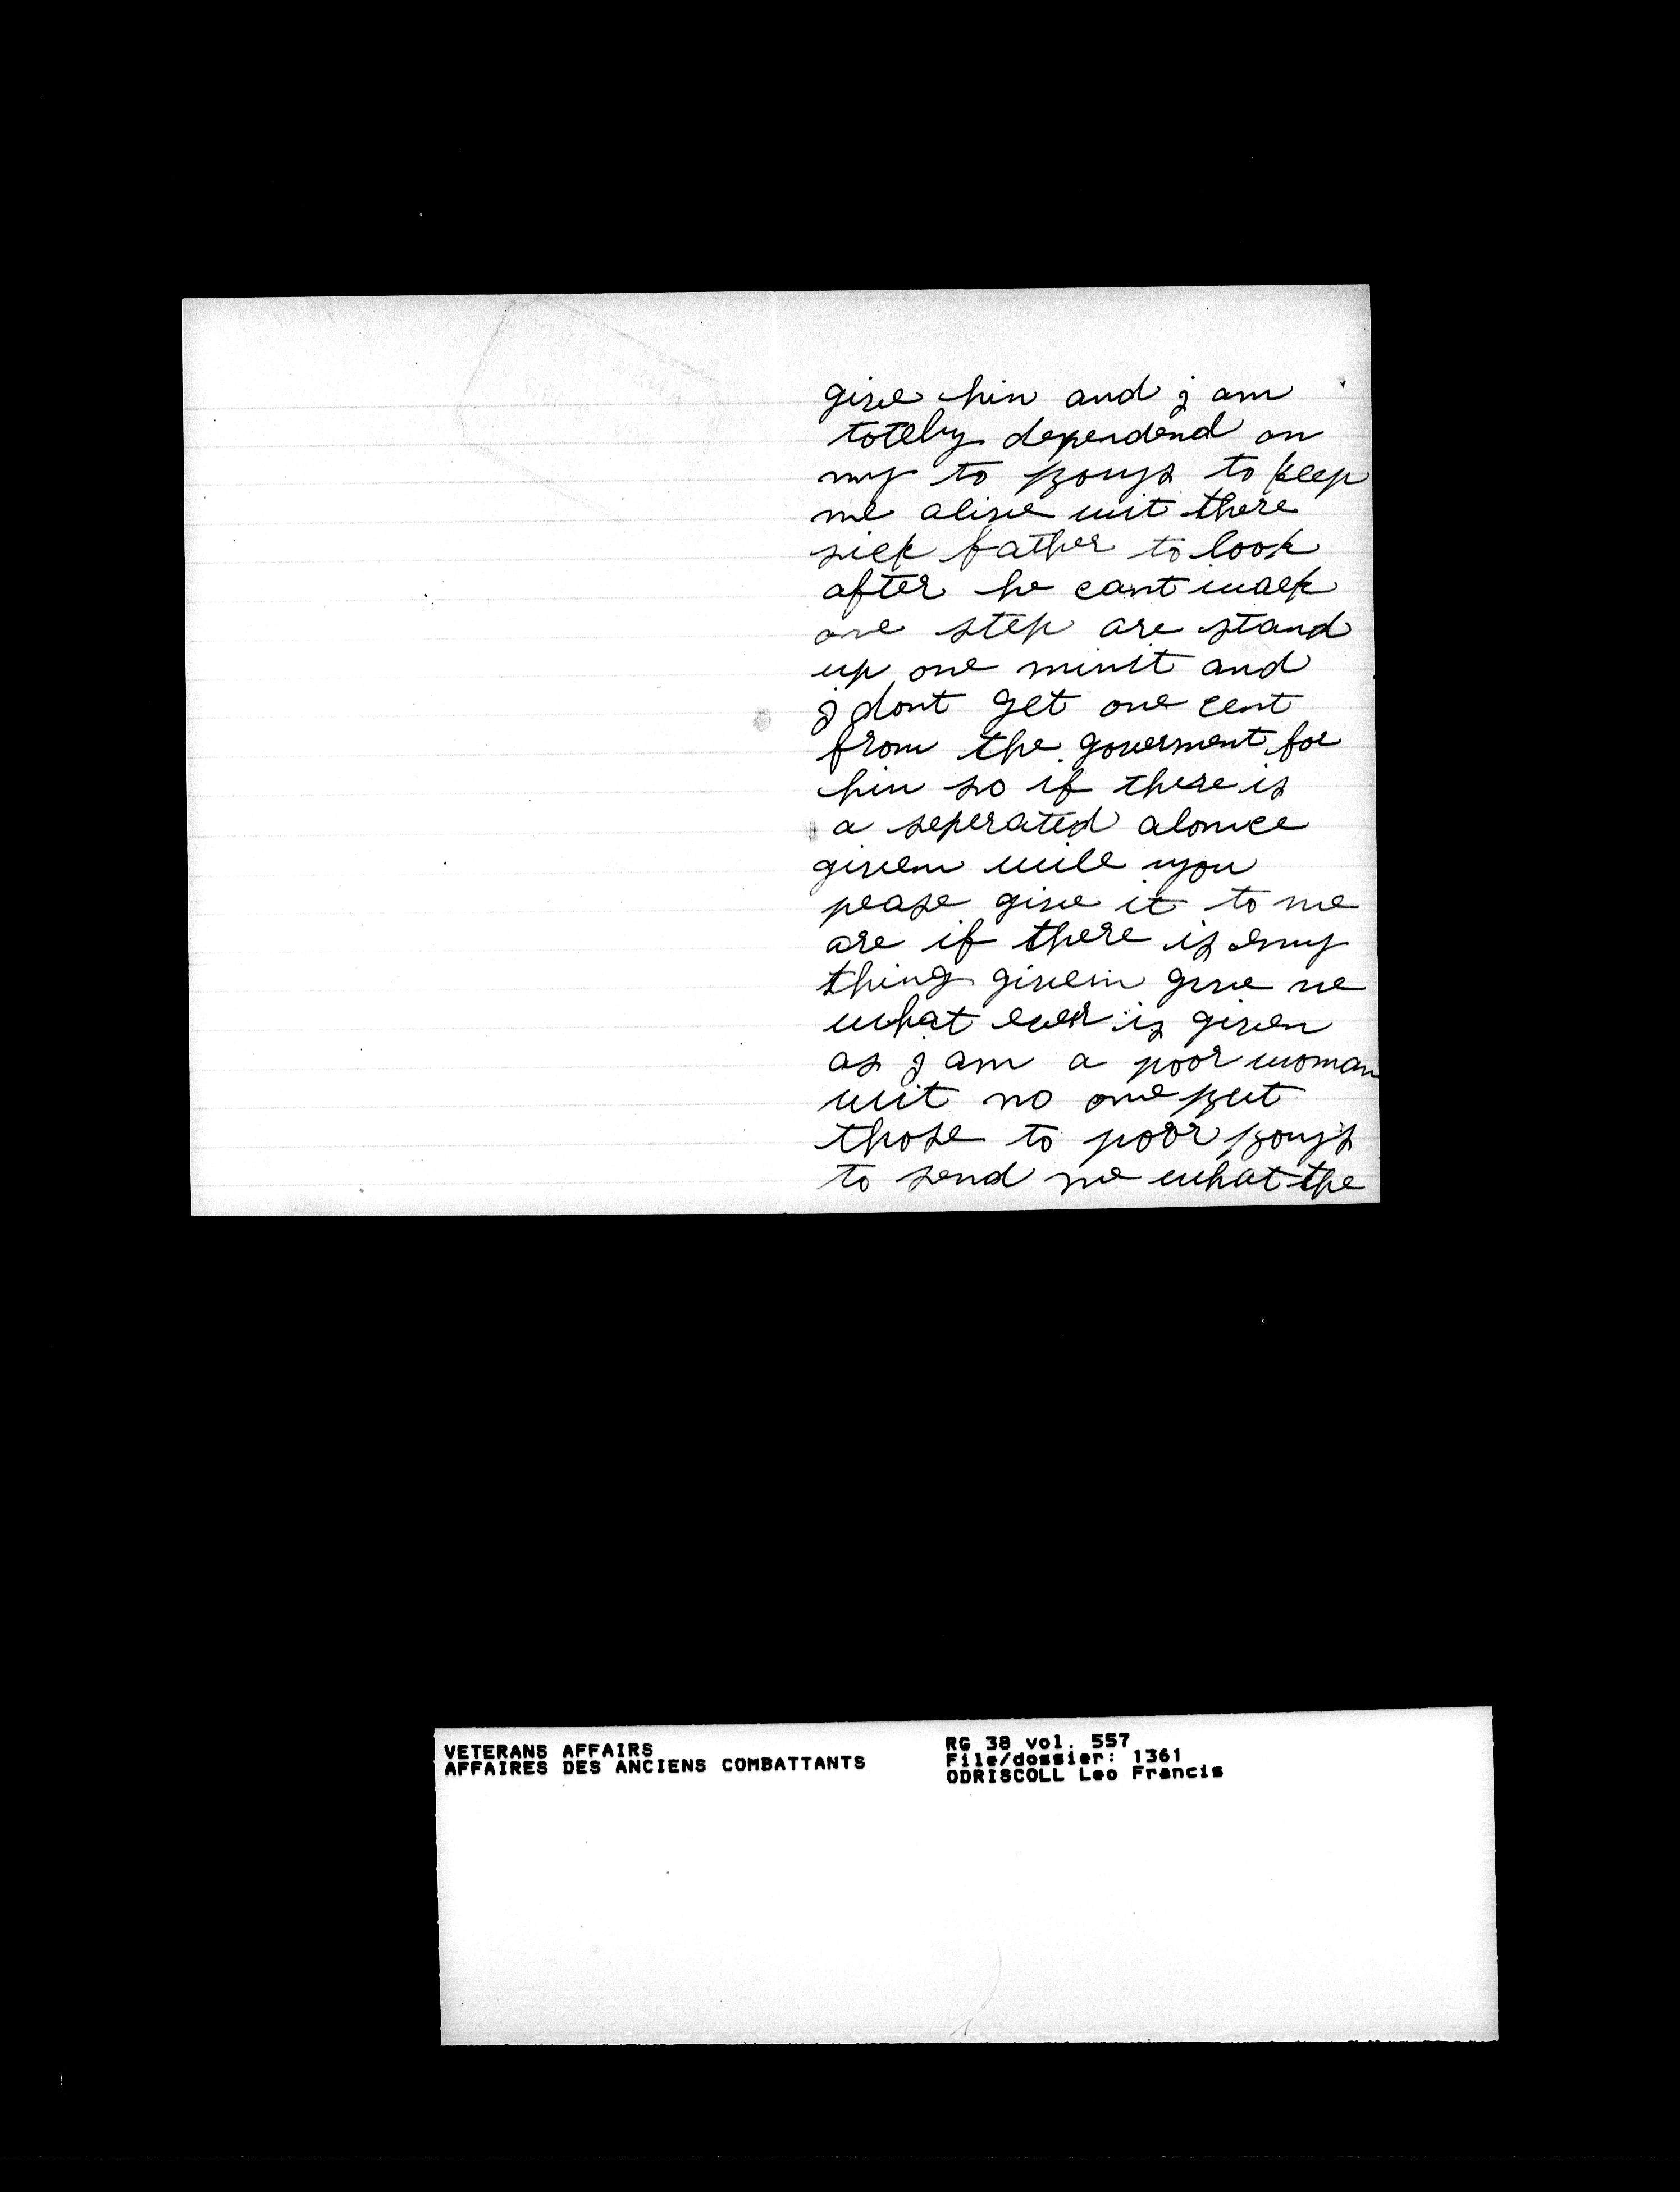 give hin and j am
totelly dependend on
my to boys to keep
me alive wit there
sick father to look
after he cant walk
one step are stand
up one minit and
j dont get one cent
from the goverment for
hin so if there is
a seperated alonce
givem will you
pease give it to me
are if there is eny
thing givein give me
what ever is given
as j am a poor woman
wit no one but
those to poor boys
to send me what the
VETERANS AFFAIRS
AFFAIRES DES ANCIENS COMBATTANTS
RG 38 vol. 557
File/dossier: 1361
ODRISCOLL Leo Francis